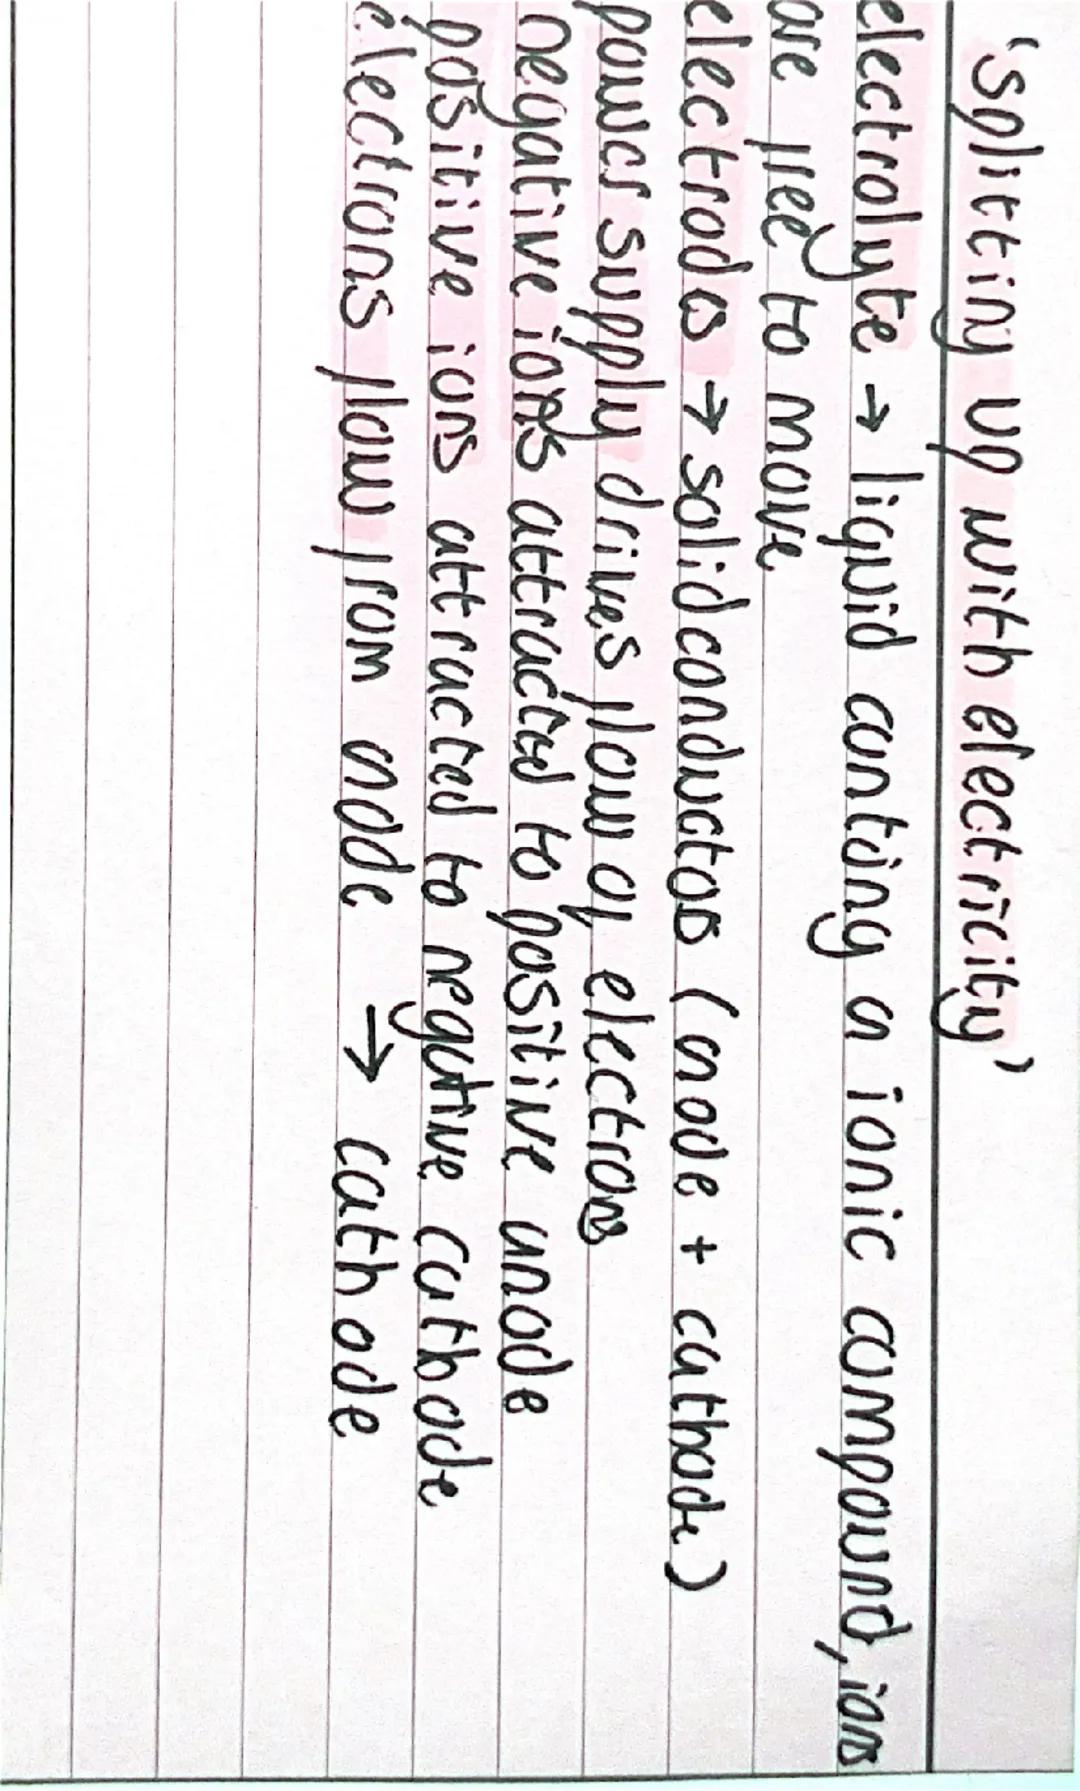 'splitting up with electricity'
electrolyte → liquid containg a ionic compound, ions
are free to move
electrodes → solid conductos (anode + cathode)
power supply drives flow of electrons
negative ions attracted to positive anode
positive ions attracted to negative cathode
electrons flow from anode → cathode